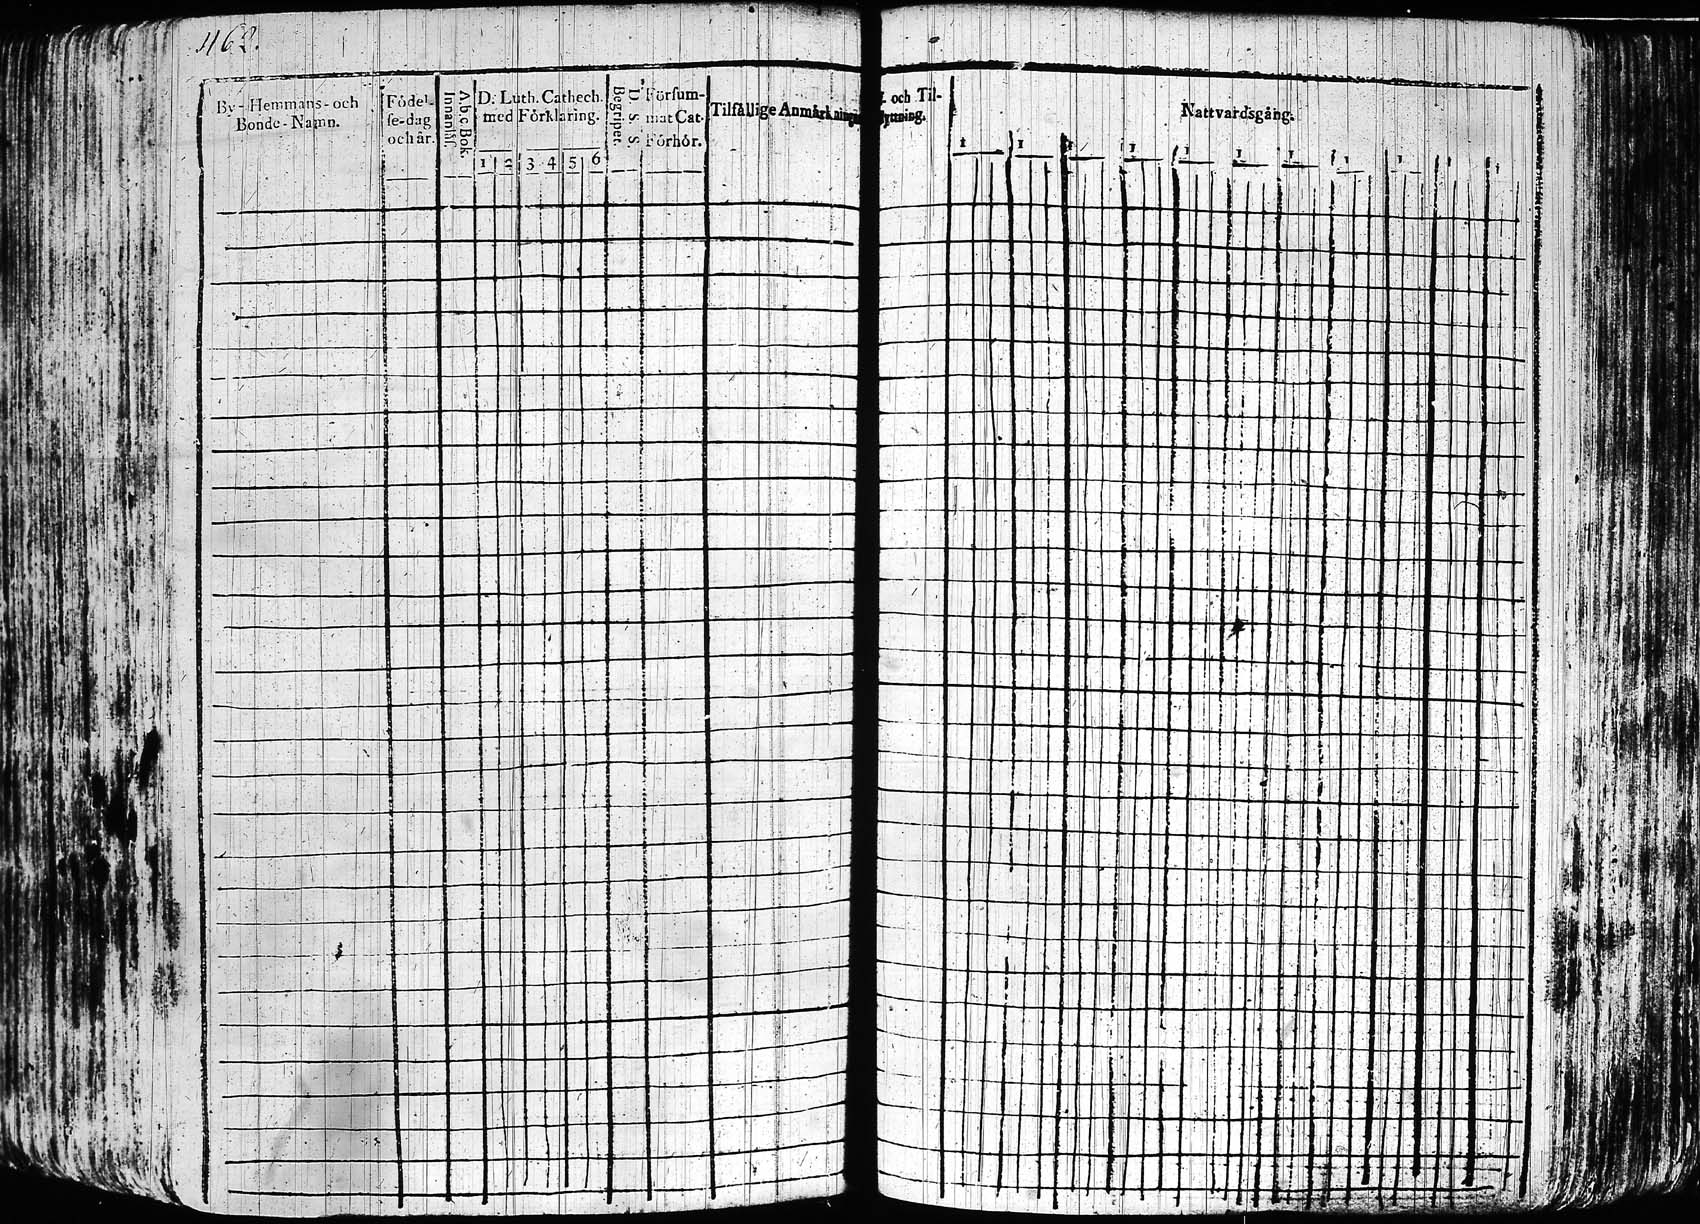 462.
By- Hemmans- och
Bonde- Namn.
Födel-
se-dag
och år.
A.b.c Bok.
Innantill.
D. Luth. Cathech.
med Förklaring.
1 2 3 4 5 6
D. S. S.
Begriper.
Försum-
mat Cat.
Förhör.
Tilfällige Anmärkningar
och Til-
flyttning.
Nattvardsgång.
1 1 1 1 1 1 1 1 1 1 1